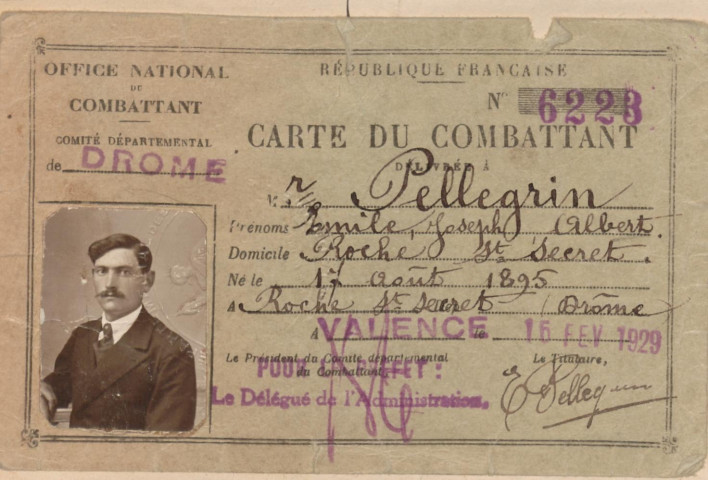 OFFICE NATIONAL
DU
COMBATTANT
COMITÉ DÉPARTEMENTAL
de DROME
RÉPUBLIQUE FRANÇAISE
N° 6223
CARTE DU COMBATTANT
DÉLIVRÉE À
M r Pellegrin
Prénoms Emile, Joseph Albert.
Domicile Roche St Secret.
Né le 17 Août 1895
A Roche St Secret (Drôme
A VALENCE le 15 FEV 1929
Le Président du Comité départemental
du Combattant,
POUR :
Le Délégué de l'Administration,
Le Titulaire,
E Pellegrin